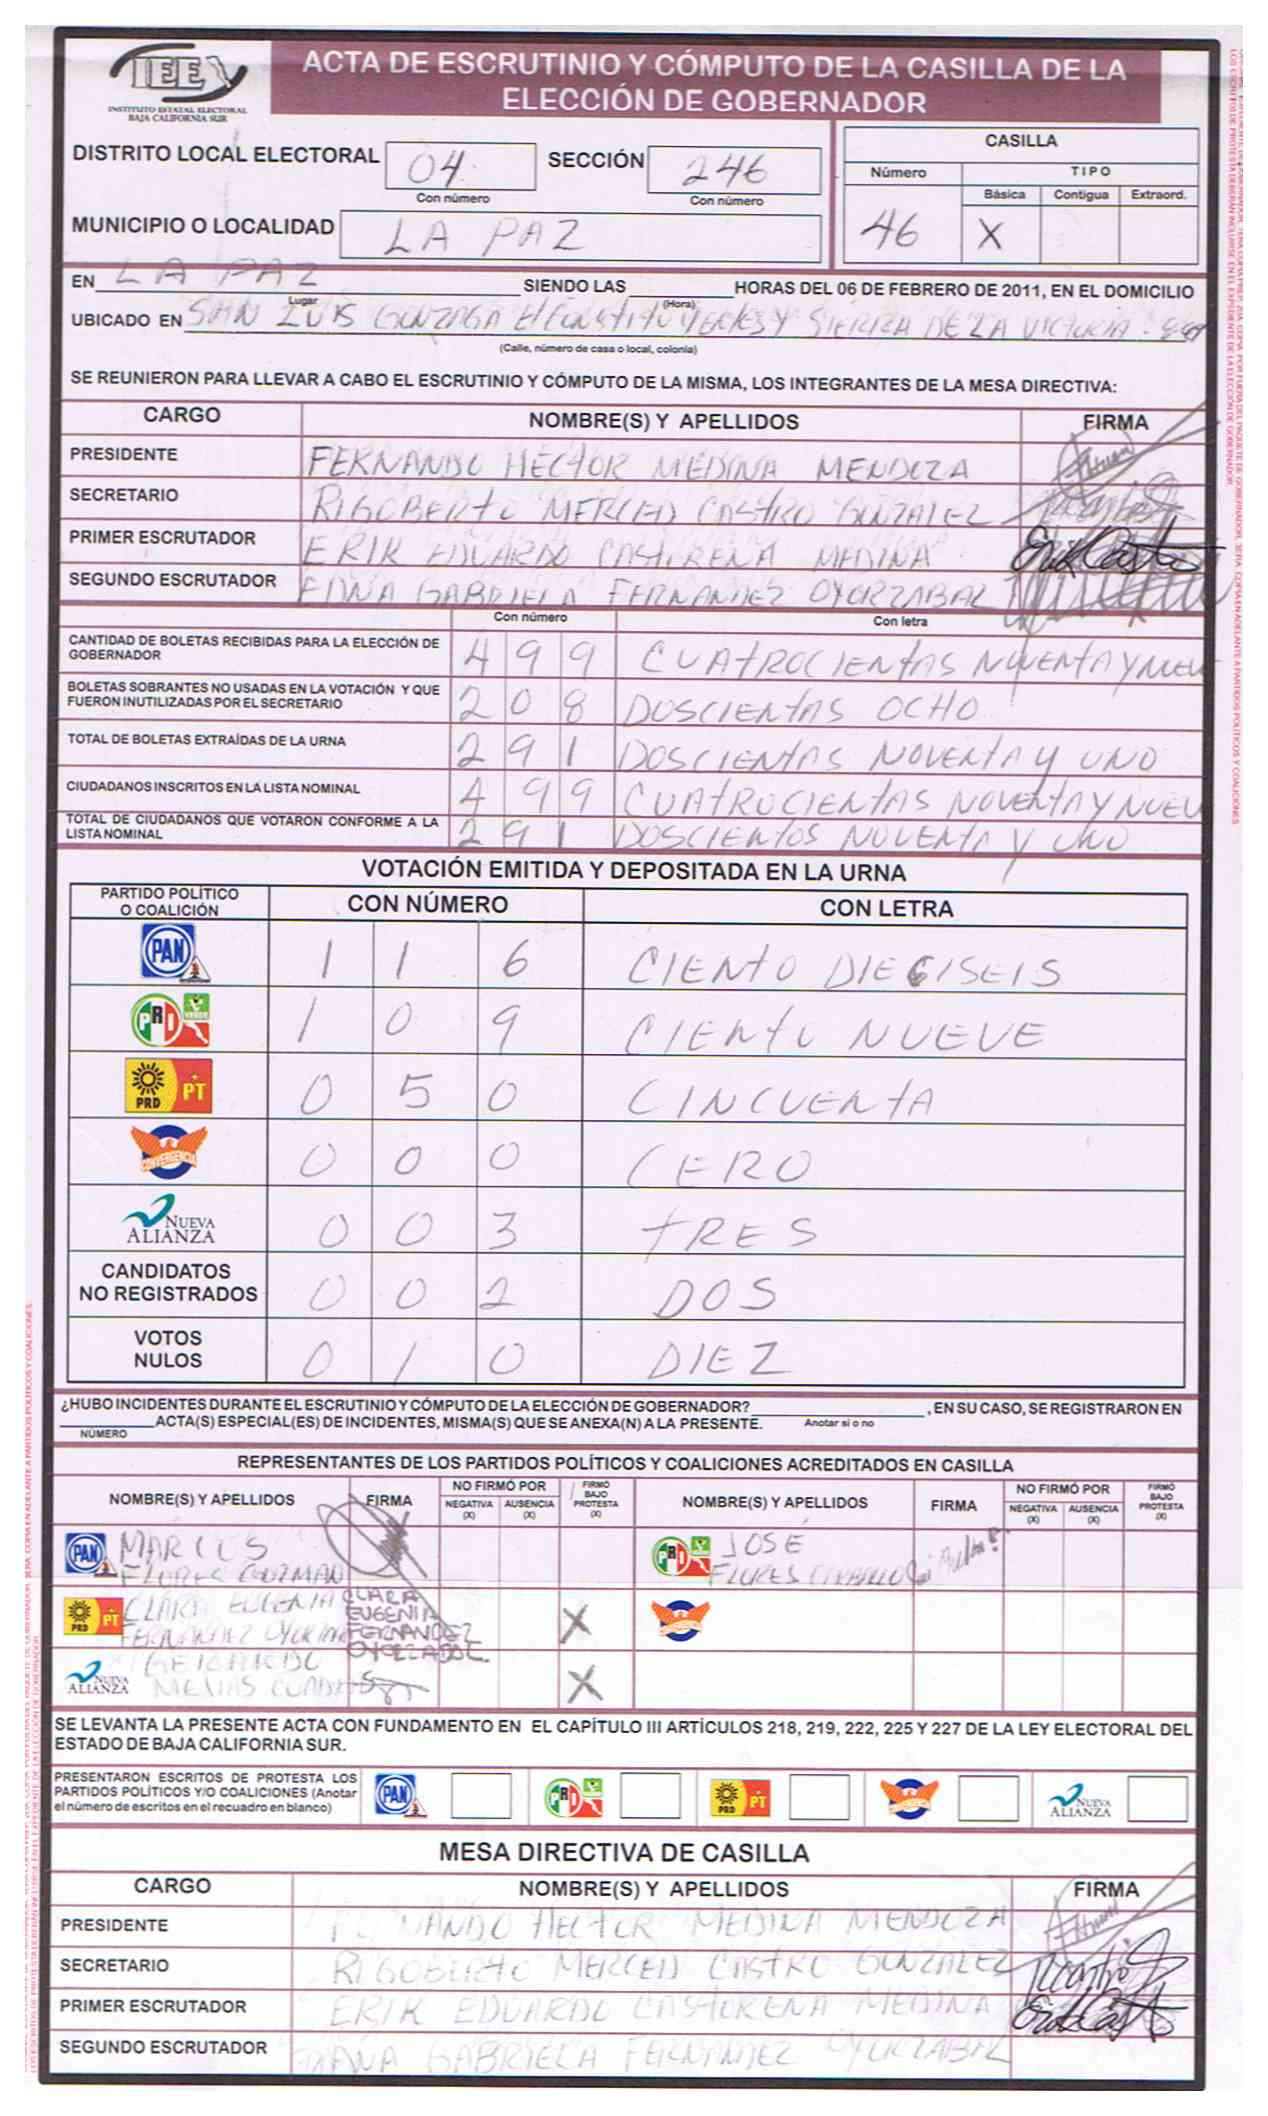 IEE
INSTITUTO ESTATAL ELECTORAL
BAJA CALIFORNIA SUR
ACTA DE ESCRUTINIO Y CÓMPUTO DE LA CASILLA DE LA
ELECCIÓN DE GOBERNADOR
DISTRITO LOCAL ELECTORAL 04 SECCIÓN 246
Con número Con número
MUNICIPIO O LOCALIDAD LA PAZ
CASILLA
Número TIPO
Básica Contigua Extraord.
46 X
EN LA PAZ SIENDO LAS HORAS DEL 06 DE FEBRERO DE 2011, EN EL DOMICILIO
Lugar (Hora)
UBICADO EN SAN LUIS GONZAGA E/CONSTITUYENTES Y SIERRA DE LA VICTORIA
(Calle, número de casa o local, colonia)
SE REUNIERON PARA LLEVAR A CABO EL ESCRUTINIO Y CÓMPUTO DE LA MISMA, LOS INTEGRANTES DE LA MESA DIRECTIVA:
CARGO NOMBRE(S) Y APELLIDOS FIRMA
PRESIDENTE FERNANDO HECTOR MEDINA MENDOZA
SECRETARIO RIGOBERTO MERCED CASTRO GONZALEZ
PRIMER ESCRUTADOR ERIK EDUARDO CASTORENA MEDINA
SEGUNDO ESCRUTADOR GABRIELA FERNANDEZ OYORZABAL
Con número Con letra
CANTIDAD DE BOLETAS RECIBIDAS PARA LA ELECCIÓN DE
GOBERNADOR 499 CUATROCIENTAS NOVENTA Y NUEV
BOLETAS SOBRANTES NO USADAS EN LA VOTACIÓN Y QUE
FUERON INUTILIZADAS POR EL SECRETARIO 208 DOSCIENTAS OCHO
TOTAL DE BOLETAS EXTRAÍDAS DE LA URNA 291 DOSCIENTAS NOVENTA Y UNO
CIUDADANOS INSCRITOS EN LA LISTA NOMINAL 499 CUATROCIENTAS NOVENTA Y NUEV
TOTAL DE CIUDADANOS QUE VOTARON CONFORME A LA
LISTA NOMINAL 291 DOSCIENTOS NOVENTA Y UNO
VOTACIÓN EMITIDA Y DEPOSITADA EN LA URNA
PARTIDO POLÍTICO
O COALICIÓN CON NÚMERO CON LETRA
PAN 1 1 6 CIENTO DIECISEIS
PRI VERDE 1 0 9 CIENTO NUEVE
PRD PT 0 5 0 CINCUENTA
CONVERGENCIA 0 0 0 CERO
NUEVA ALIANZA 0 0 3 TRES
CANDIDATOS
NO REGISTRADOS 0 0 2 DOS
VOTOS
NULOS 0 1 0 DIEZ
¿HUBO INCIDENTES DURANTE EL ESCRUTINIO Y CÓMPUTO DE LA ELECCIÓN DE GOBERNADOR? , EN SU CASO, SE REGISTRARON EN
ACTA(S) ESPECIAL(ES) DE INCIDENTES, MISMA(S) QUE SE ANEXA(N) A LA PRESENTE. Anotar si o no
NÚMERO
REPRESENTANTES DE LOS PARTIDOS POLÍTICOS Y COALICIONES ACREDITADOS EN CASILLA
NOMBRE(S) Y APELLIDOS FIRMA NO FIRMÓ POR NEGATIVA (X) AUSENCIA (X) FIRMÓ BAJO PROTESTA (X) NOMBRE(S) Y APELLIDOS FIRMA NO FIRMÓ POR NEGATIVA (X) AUSENCIA (X) FIRMÓ BAJO PROTESTA (X)
PAN MARCOS PRI JOSÉ
FLORES GUZMAN FLORES
PRD PT CLARA EUGENIA CLARA EUGENIA X
FERNANDEZ FERNANDEZ
NUEVA ALIANZA GERARDO X
SE LEVANTA LA PRESENTE ACTA CON FUNDAMENTO EN EL CAPÍTULO III ARTÍCULOS 218, 219, 222, 225 Y 227 DE LA LEY ELECTORAL DEL
ESTADO DE BAJA CALIFORNIA SUR.
PRESENTARON ESCRITOS DE PROTESTA LOS
PARTIDOS POLÍTICOS Y/O COALICIONES (Anotar
el número de escritos en el recuadro en blanco)
PAN PRI PRD PT CONVERGENCIA NUEVA ALIANZA
MESA DIRECTIVA DE CASILLA
CARGO NOMBRE(S) Y APELLIDOS FIRMA
PRESIDENTE FERNANDO HECTOR MEDINA MENDOZA
SECRETARIO RIGOBERTO MERCED CASTRO GONZALEZ
PRIMER ESCRUTADOR ERIK EDUARDO CASTORENA MEDINA
SEGUNDO ESCRUTADOR GABRIELA FERNANDEZ OYORZABAL